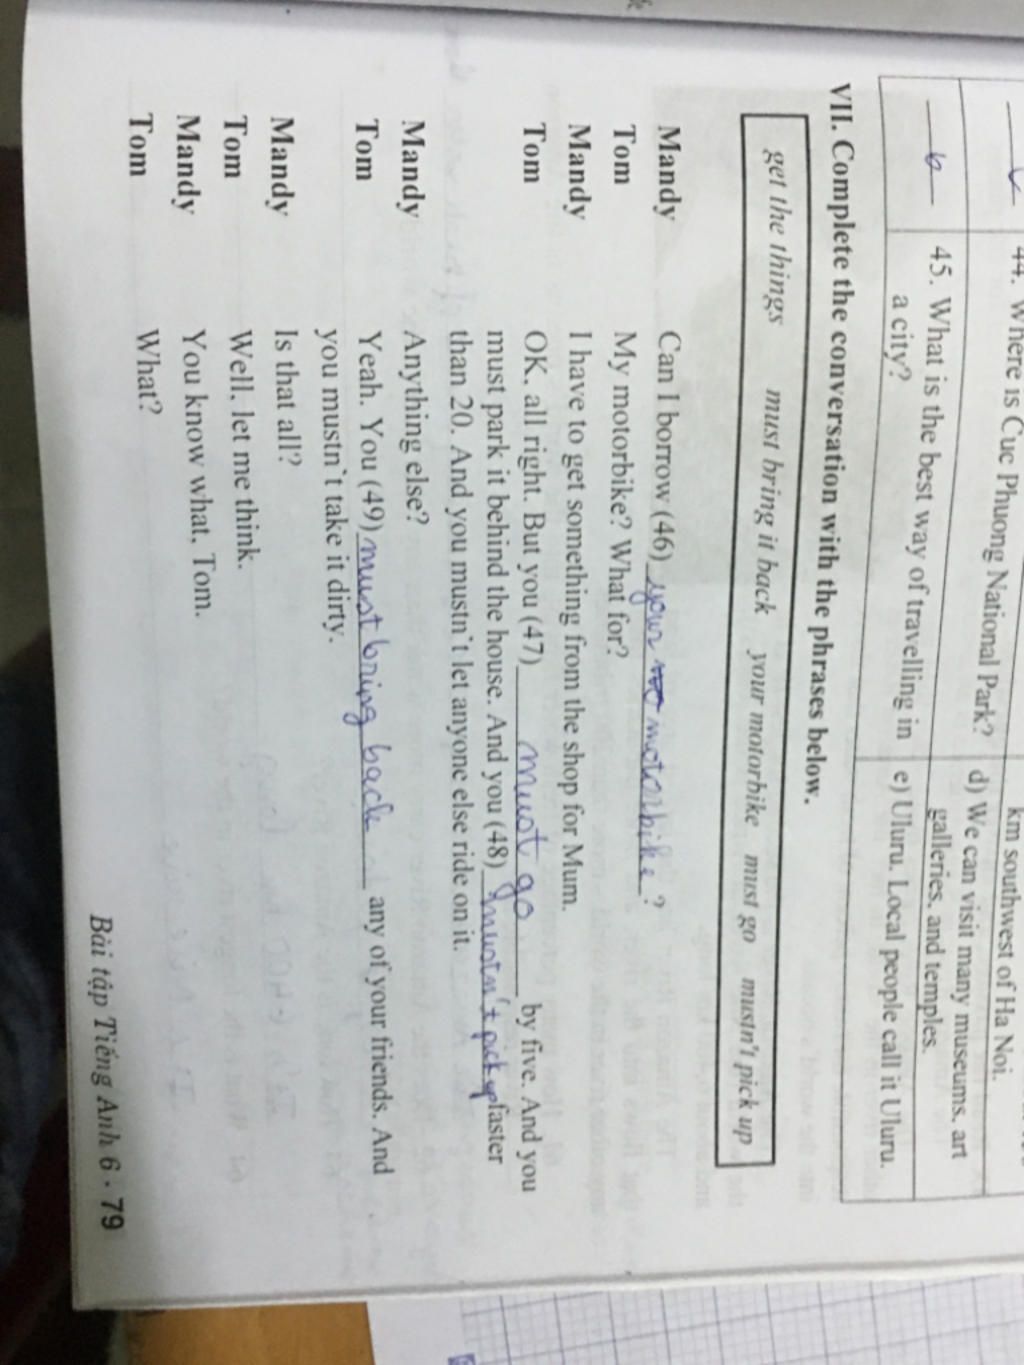 44. Where is Cuc Phuong National Park?
km southwest of Ha Noi.
d) We can visit many museums, art
galleries, and temples.
b
45. What is the best way of travelling in
a city?
e) Uluru. Local people call it Uluru.
VII. Complete the conversation with the phrases below.
get the things must bring it back your motorbike must go mustn't pick up
Mandy Can I borrow (46) your motorbike ?
Tom My motorbike? What for?
Mandy I have to get something from the shop for Mum.
Tom OK, all right. But you (47) must go by five. And you
must park it behind the house. And you (48) mustn't pick up faster
than 20. And you mustn't let anyone else ride on it.
Mandy Anything else?
Tom Yeah. You (49) must bring back any of your friends. And
you mustn't take it dirty.
Mandy Is that all?
Tom Well, let me think.
Mandy You know what, Tom.
Tom What?
Bài tập Tiếng Anh 6 - 79